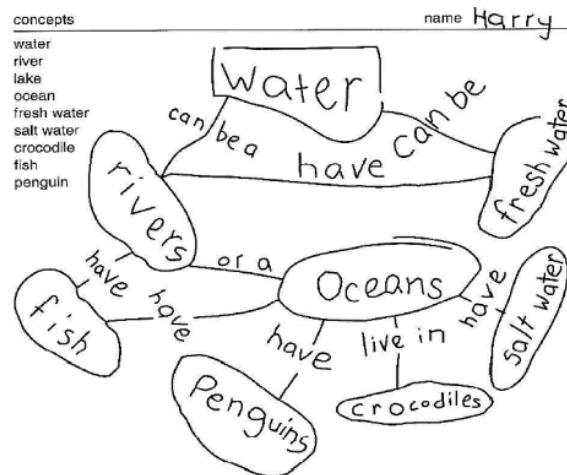 concepts
name Harry
water
river
lake
ocean
fresh water
salt water
crocodile
fish
penguin
Water
can be a
have
can be
fresh water
rivers
or a
Oceans
have
have
fish
have
live in
have
salt water
Penguins
crocodiles